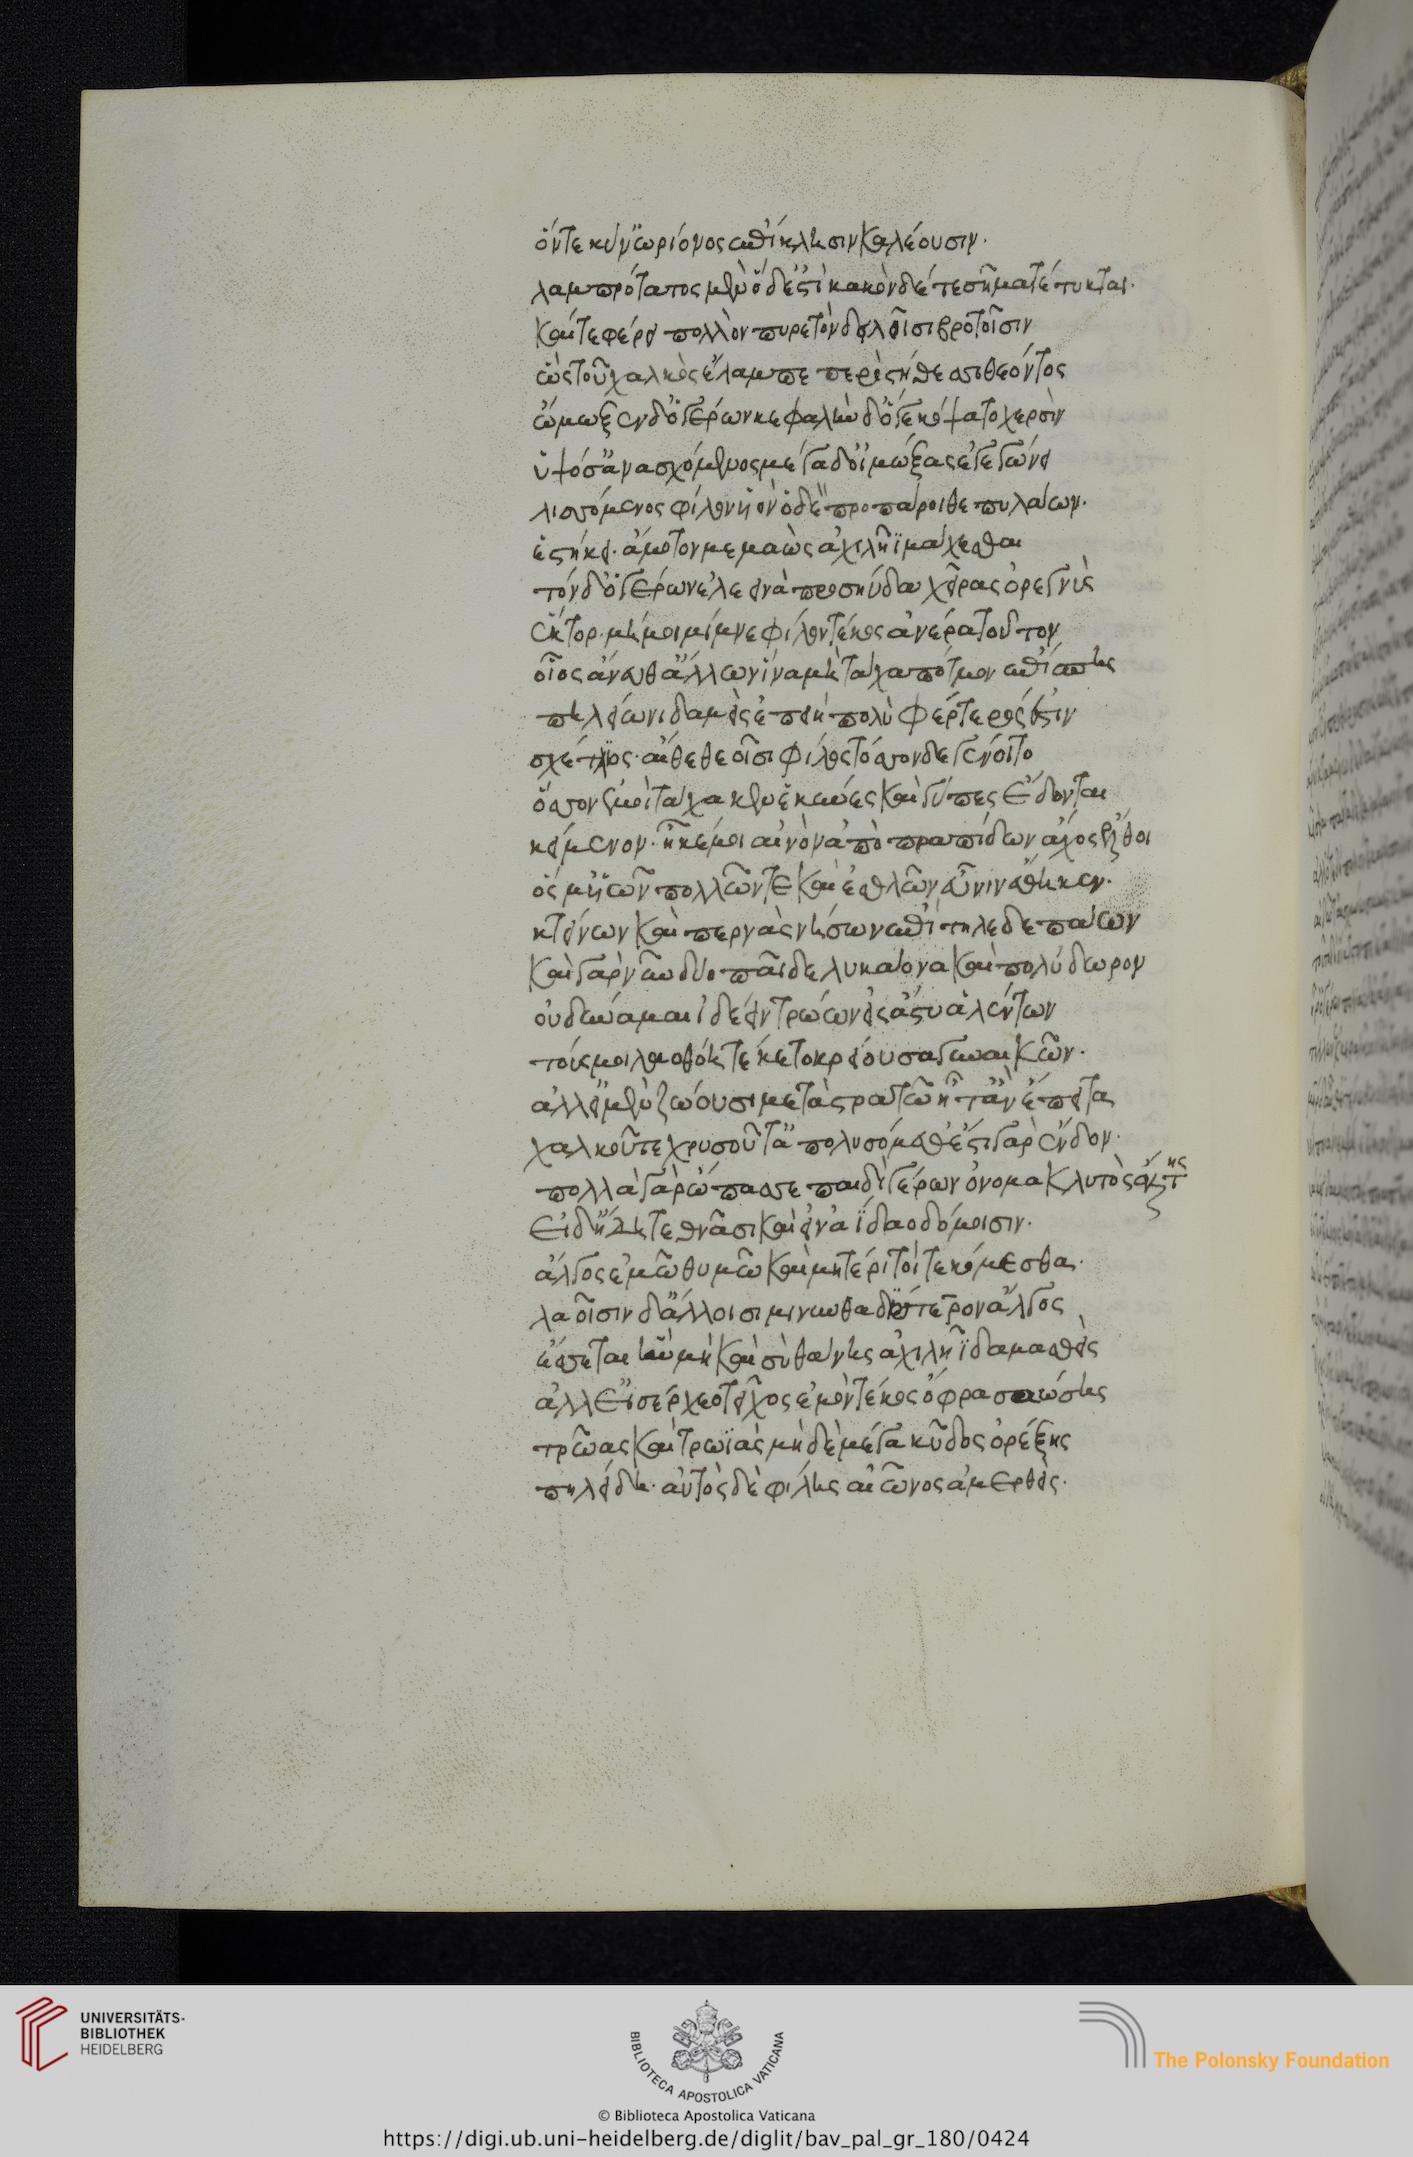 ὅντε κύν' ὠρίονος ἐπίκλησιν καλέουσιν·
λαμπρότατος μὲν ὅδ' ἐστὶ κακὸν δέ τε σῆμα τέτυκται·
καί τε φέρει πολλὸν πυρετὸν δειλοῖσι βροτοῖσιν
ὣς τοῦ χαλκὸς ἔλαμπε περὶ στήθεσσι θέοντος
ᾤμωξεν δ' ὁ γέρων κεφαλὴν δ' ὅγε κόψατο χερσὶν
ὑψόσ' ἀνασχόμενος μέγα δ' οἰμώξας ἐγεγώνει
λισσόμενος φίλον υἱὸν ὁ δὲ προπάροιθε πυλάων·
ἑστήκει· ἄμοτον μεμαὼς ἀχιλῆϊ μάχεσθαι
τὸν δ' ὁ γέρων ἐλεεινὰ προσηύδα χεῖρας ὀρεγνὺς
ἕκτορ· μή μοι μίμνε φίλον τέκος ἀνέρα τοῦτον
οἶος ἄνευθ' ἄλλων ἵνα μὴ τάχα πότμον ἐπίσπῃς
πηλείωνι δαμεὶς ἐπειὴ πολὺ φέρτερός ἐστιν
σχέτλιος· αἴθε θεοῖσι φίλος τόσσονδε γένοιτο
ὅσσον ἐμοὶ τάχα κέν ἑ κύνες καὶ γύπες ἔδονται
κείμενον· ἦ κέ μοι αἰνὸν ἀπὸ πραπίδων ἄχος ἔλθοι
ὅς μ' υἱῶν πολλῶν τε καὶ ἐσθλῶν εὖνιν ἔθηκεν·
κτείνων καὶ περνὰς νήσων ἐπὶ τηλεδεπάων
καὶ γὰρ νῦν δύο παῖδε λυκάονα καὶ πολύδωρον
οὐ δύναμαι ἰδέειν τρώων εἰς ἄστυ ἀλέντων
τούς μοι λαοθόη τέκετο κρείουσα γυναικῶν·
ἀλλ' εἰ μὲν ζώουσι μετὰ στρατῷ ἦ τ' ἂν ἔπειτα
χαλκοῦ τε χρυσοῦ τ' ἀπολυσόμεθ' ἔστι γὰρ ἔνδον·
πολλὰ γὰρ ὤπασε παιδὶ γέρων ὀνομακλυτὸς ἄλτης
εἰ δ' ἤδη τεθνᾶσι καὶ εἰν ἀΐδαο δόμοισιν·
ἄλγος ἐμῷ θυμῷ καὶ μητέρι τοὶ τεκόμεσθα·
λαοῖσιν δ' ἄλλοισι μινυνθαδιώτερον ἄλγος
ἔσσεται ἢν μὴ καὶ σὺ θάνῃς ἀχιλῆϊ δαμασθεὶς
ἀλλ' εἰσέρχεο τεῖχος ἐμὸν τέκος ὄφρα σαώσῃς
τρῶας καὶ τρωϊὰς μὴ δὲ μέγα κῦδος ὀρέξῃς
πηλείδῃ· αὐτὸς δὲ φίλης αἰῶνος ἀμερθεὶς·
UNIVERSITÄTS-
BIBLIOTHEK
HEIDELBERG
BIBLIOTECA APOSTOLICA VATICANA
The Polonsky Foundation
© Biblioteca Apostolica Vaticana
https://digi.ub.uni-heidelberg.de/diglit/bav_pal_gr_180/0424